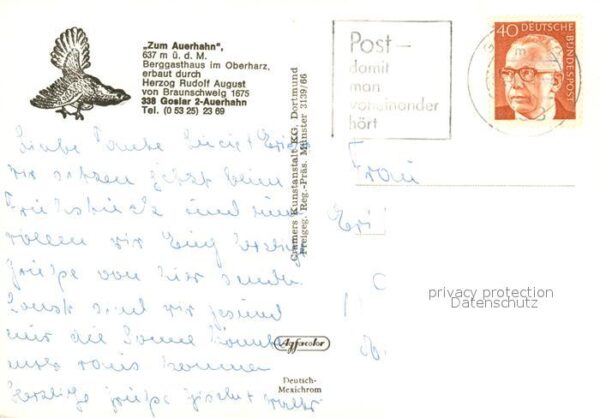 „Zum Auerhahn",
637 m ü. d. M.
Berggasthaus im Oberharz,
erbaut durch
Herzog Rudolf August
von Braunschweig 1675
338 Goslar 2-Auerhahn
Tel. (0 53 25) 23 69
Post –
damit
man
voneinander
hört
40 DEUTSCHE
BUNDESPOST
Liebe Tante
wir sitzen jetzt beim
Frühstück und nun
wollen wir Euch herzliche
Grüße von hier senden
Sonst sind wir gesund
nur die Sonne könnte
mehr raus kommen
Herzliche Grüße
Cramers Kunstanstalt KG. Dortmund
Freigeg. Reg.-Präs. Münster 3139/66
Frau
privacy protection
Datenschutz
Agfacolor
Deutsch-
Mexichrom